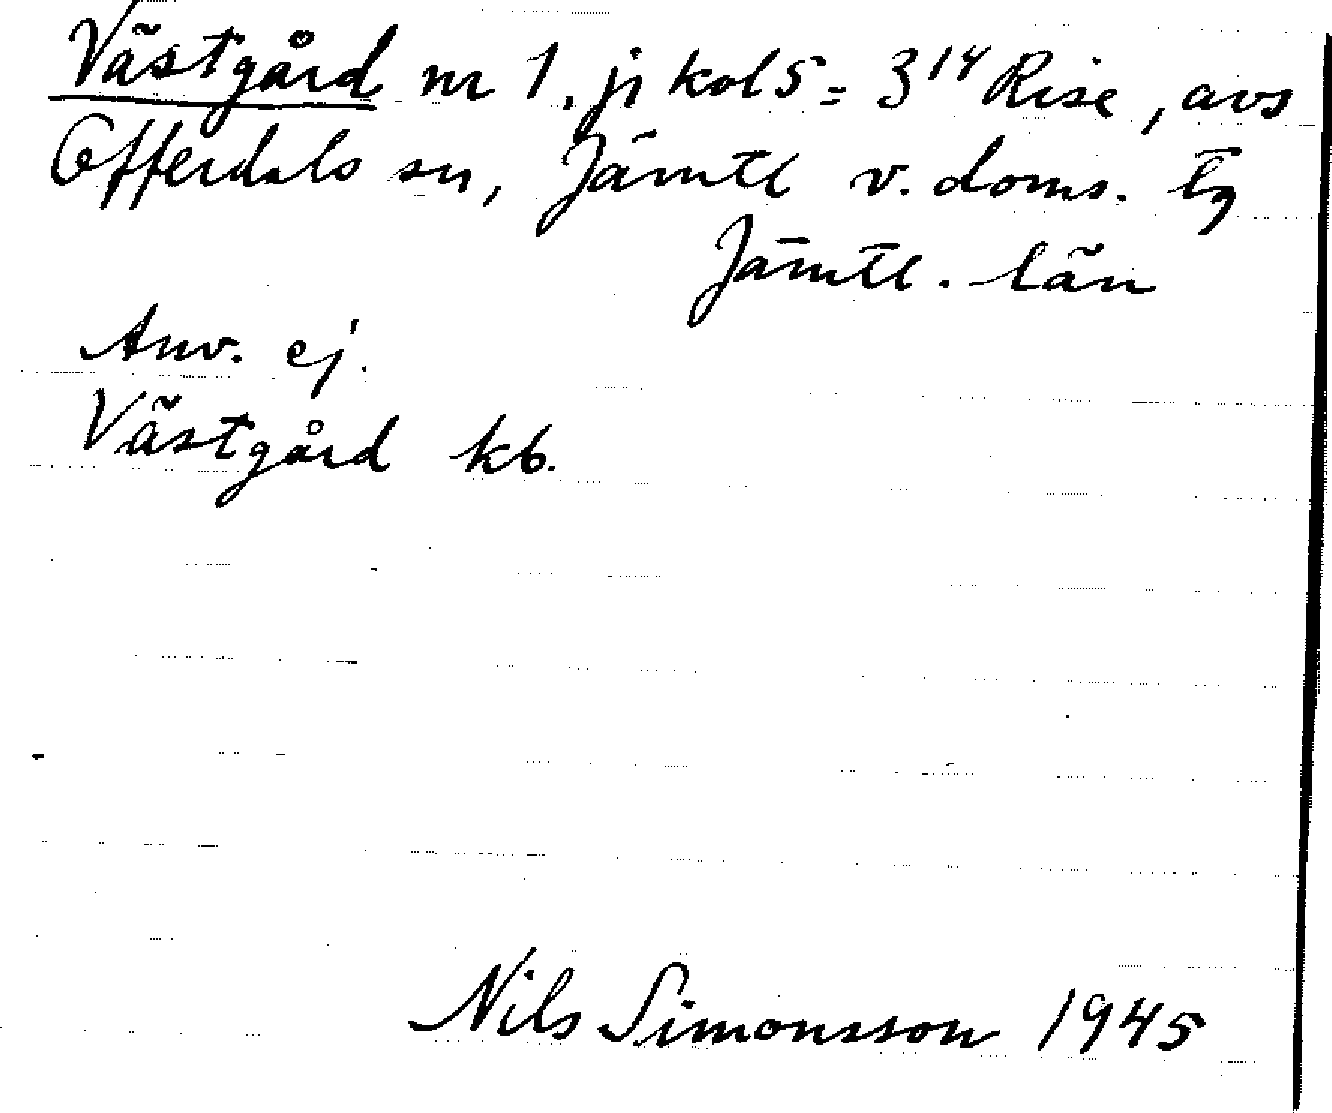 Västgård nr 1, ji kol 5 = 3¹⁴ Rise, avs
Offerdals sn, Jämtl v. doms. tg
Jämtl. län
Anv. ej.
Västgård kb.
Nils Simonsson 1945